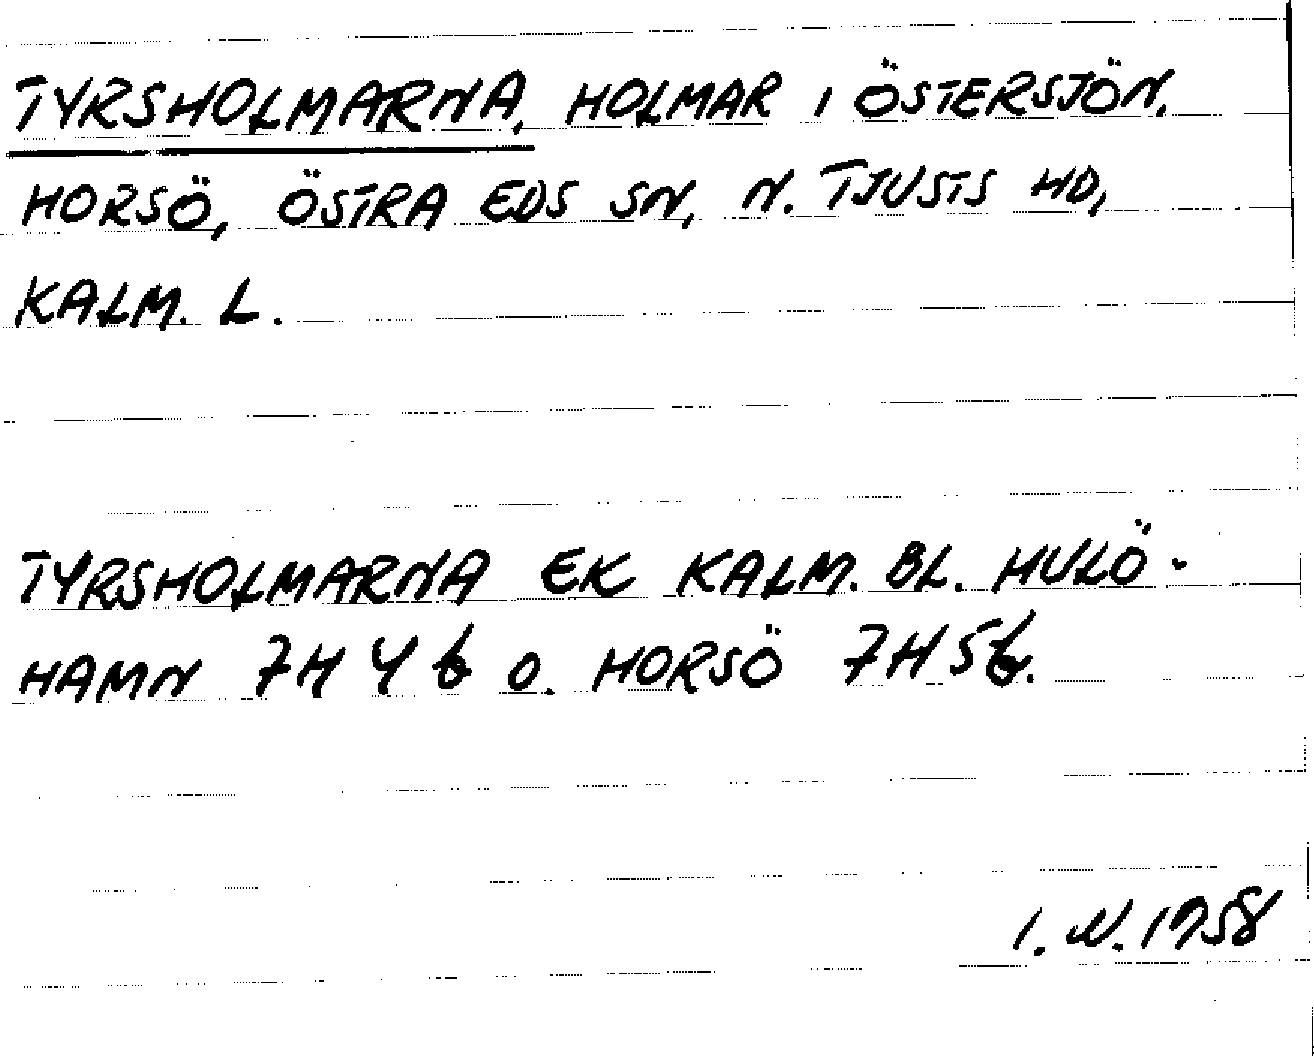 TYRSHOLMARNA, HOLMAR I ÖSTERSJÖN,
HORSÖ, ÖSTRA EDS SN, N. TJUSTS HD,
KALM. L.
TYRSHOLMARNA EK KALM. BL. HULÖ-
HAMN 7H 4 b O. HORSÖ 7H 5 b.
I. N. 1958